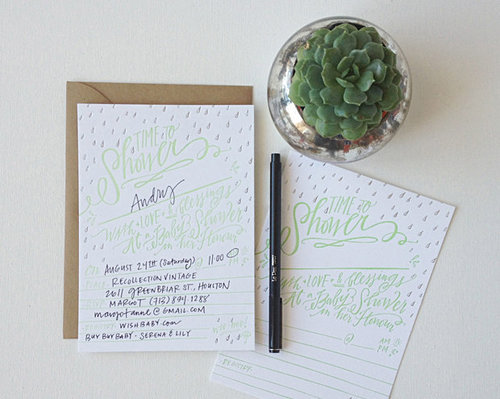 TIME TO
Shower
Andry
with LOVE & blessings
At a Baby Shower
in her Honour
ON AUGUST 24TH (Saturday) @ 11:00
RECOLLECTION VINTAGE
2611 GREENBRIAR ST, HOUSTON
MARGOT (713) 894-1288
@GMAIL.COM
WISHBABY.COM
BUY BUY BABY - SERENA & LILY
TIME TO
Shower
with LOVE & blessings
At a Baby Shower
in her Honour
@ AM
PM
REGISTRY: